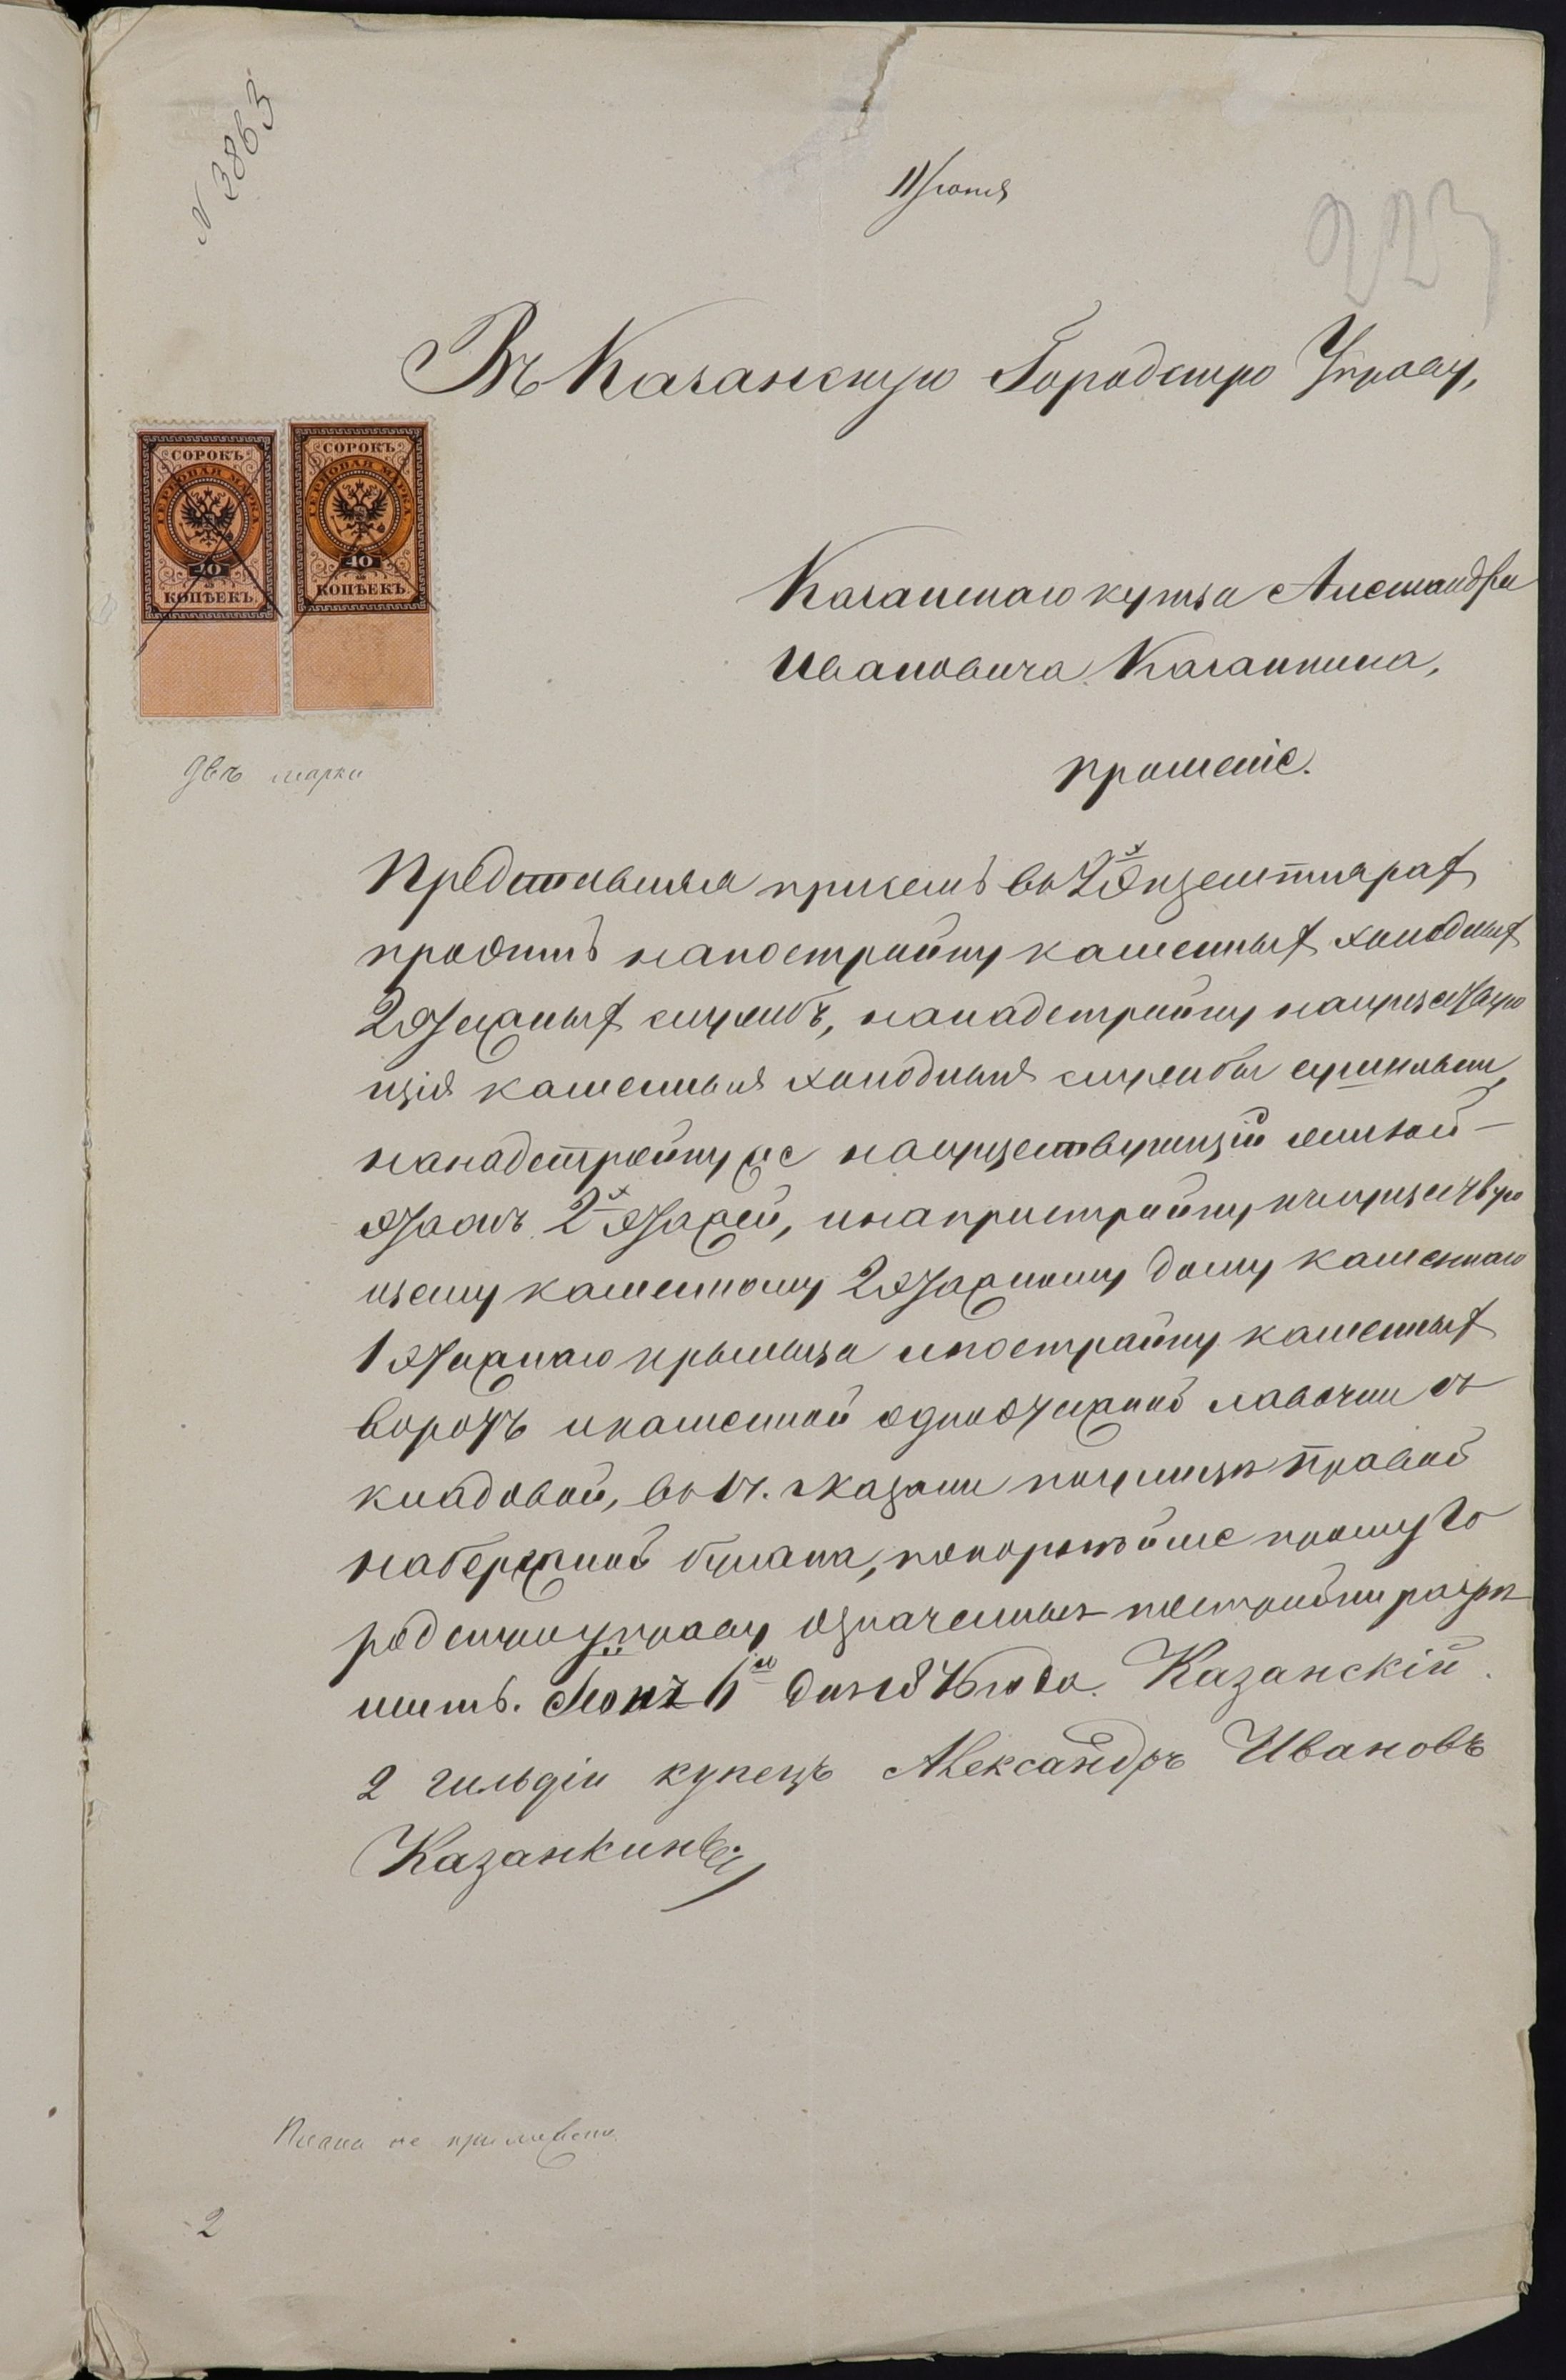 N 3863
11 Июня
223
Въ Казанскую Городскую Управу,
СОРОКЪ
ГЕРБОВАЯ МАРКА
40
КОПѢЕКЪ
СОРОКЪ
ГЕРБОВАЯ МАРКА
40
КОПѢЕКЪ
Двѣ марки
Казанскаго купца Александра
Ивановича Казанкина,
прошеніе.
Представляя при семъ въ 2х экземплярах
проэктъ на постройку каменных холодных
2 этажных служебъ, на надстройку на существую
щія каменныя холодныя службы
на надстройку же на существующій жилой
этажъ 2х этажей, и на пристройку к существую
щему каменному 2 этажному дому каменнаго
1 этажнаго крыльца и постройку каменных
воротъ и каменной одноэтажной лавочки съ
кладовой, въ г. Казани по улицѣ правой
набережной булака, покорнѣйше прошу Го
родскую управу означенныя постройки разрѣ
шить. дня 1876 года. Казанскій
2 гильдіи купецъ Александръ Ивановъ
Казанкинъ
Плана не приложено.
2